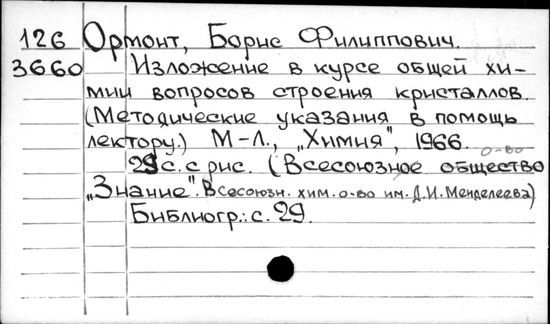 126 Ормонт, Борис Филиппович.
3660 Изложение в курсе общей хи-
мии вопросов строения кристаллов.
(Методические указания в помощь
лектору.) М-Л., „Химия", 1966.
о-во
29 с. с рис. (Всесоюзное общество
„Знание". Всесоюзн. хим. о-во им. Д.И. Менделеева)
Библиогр.: с. 29.